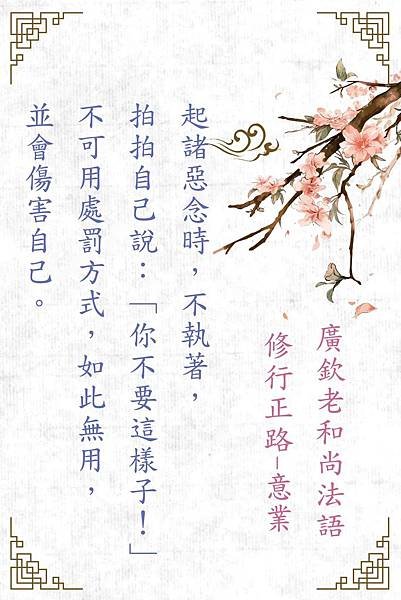 廣欽老和尚法語
修行正路-意業
起諸惡念時，不執著，
拍拍自己說：「你不要這樣子！」
不可用處罰方式，如此無用，
並會傷害自己。